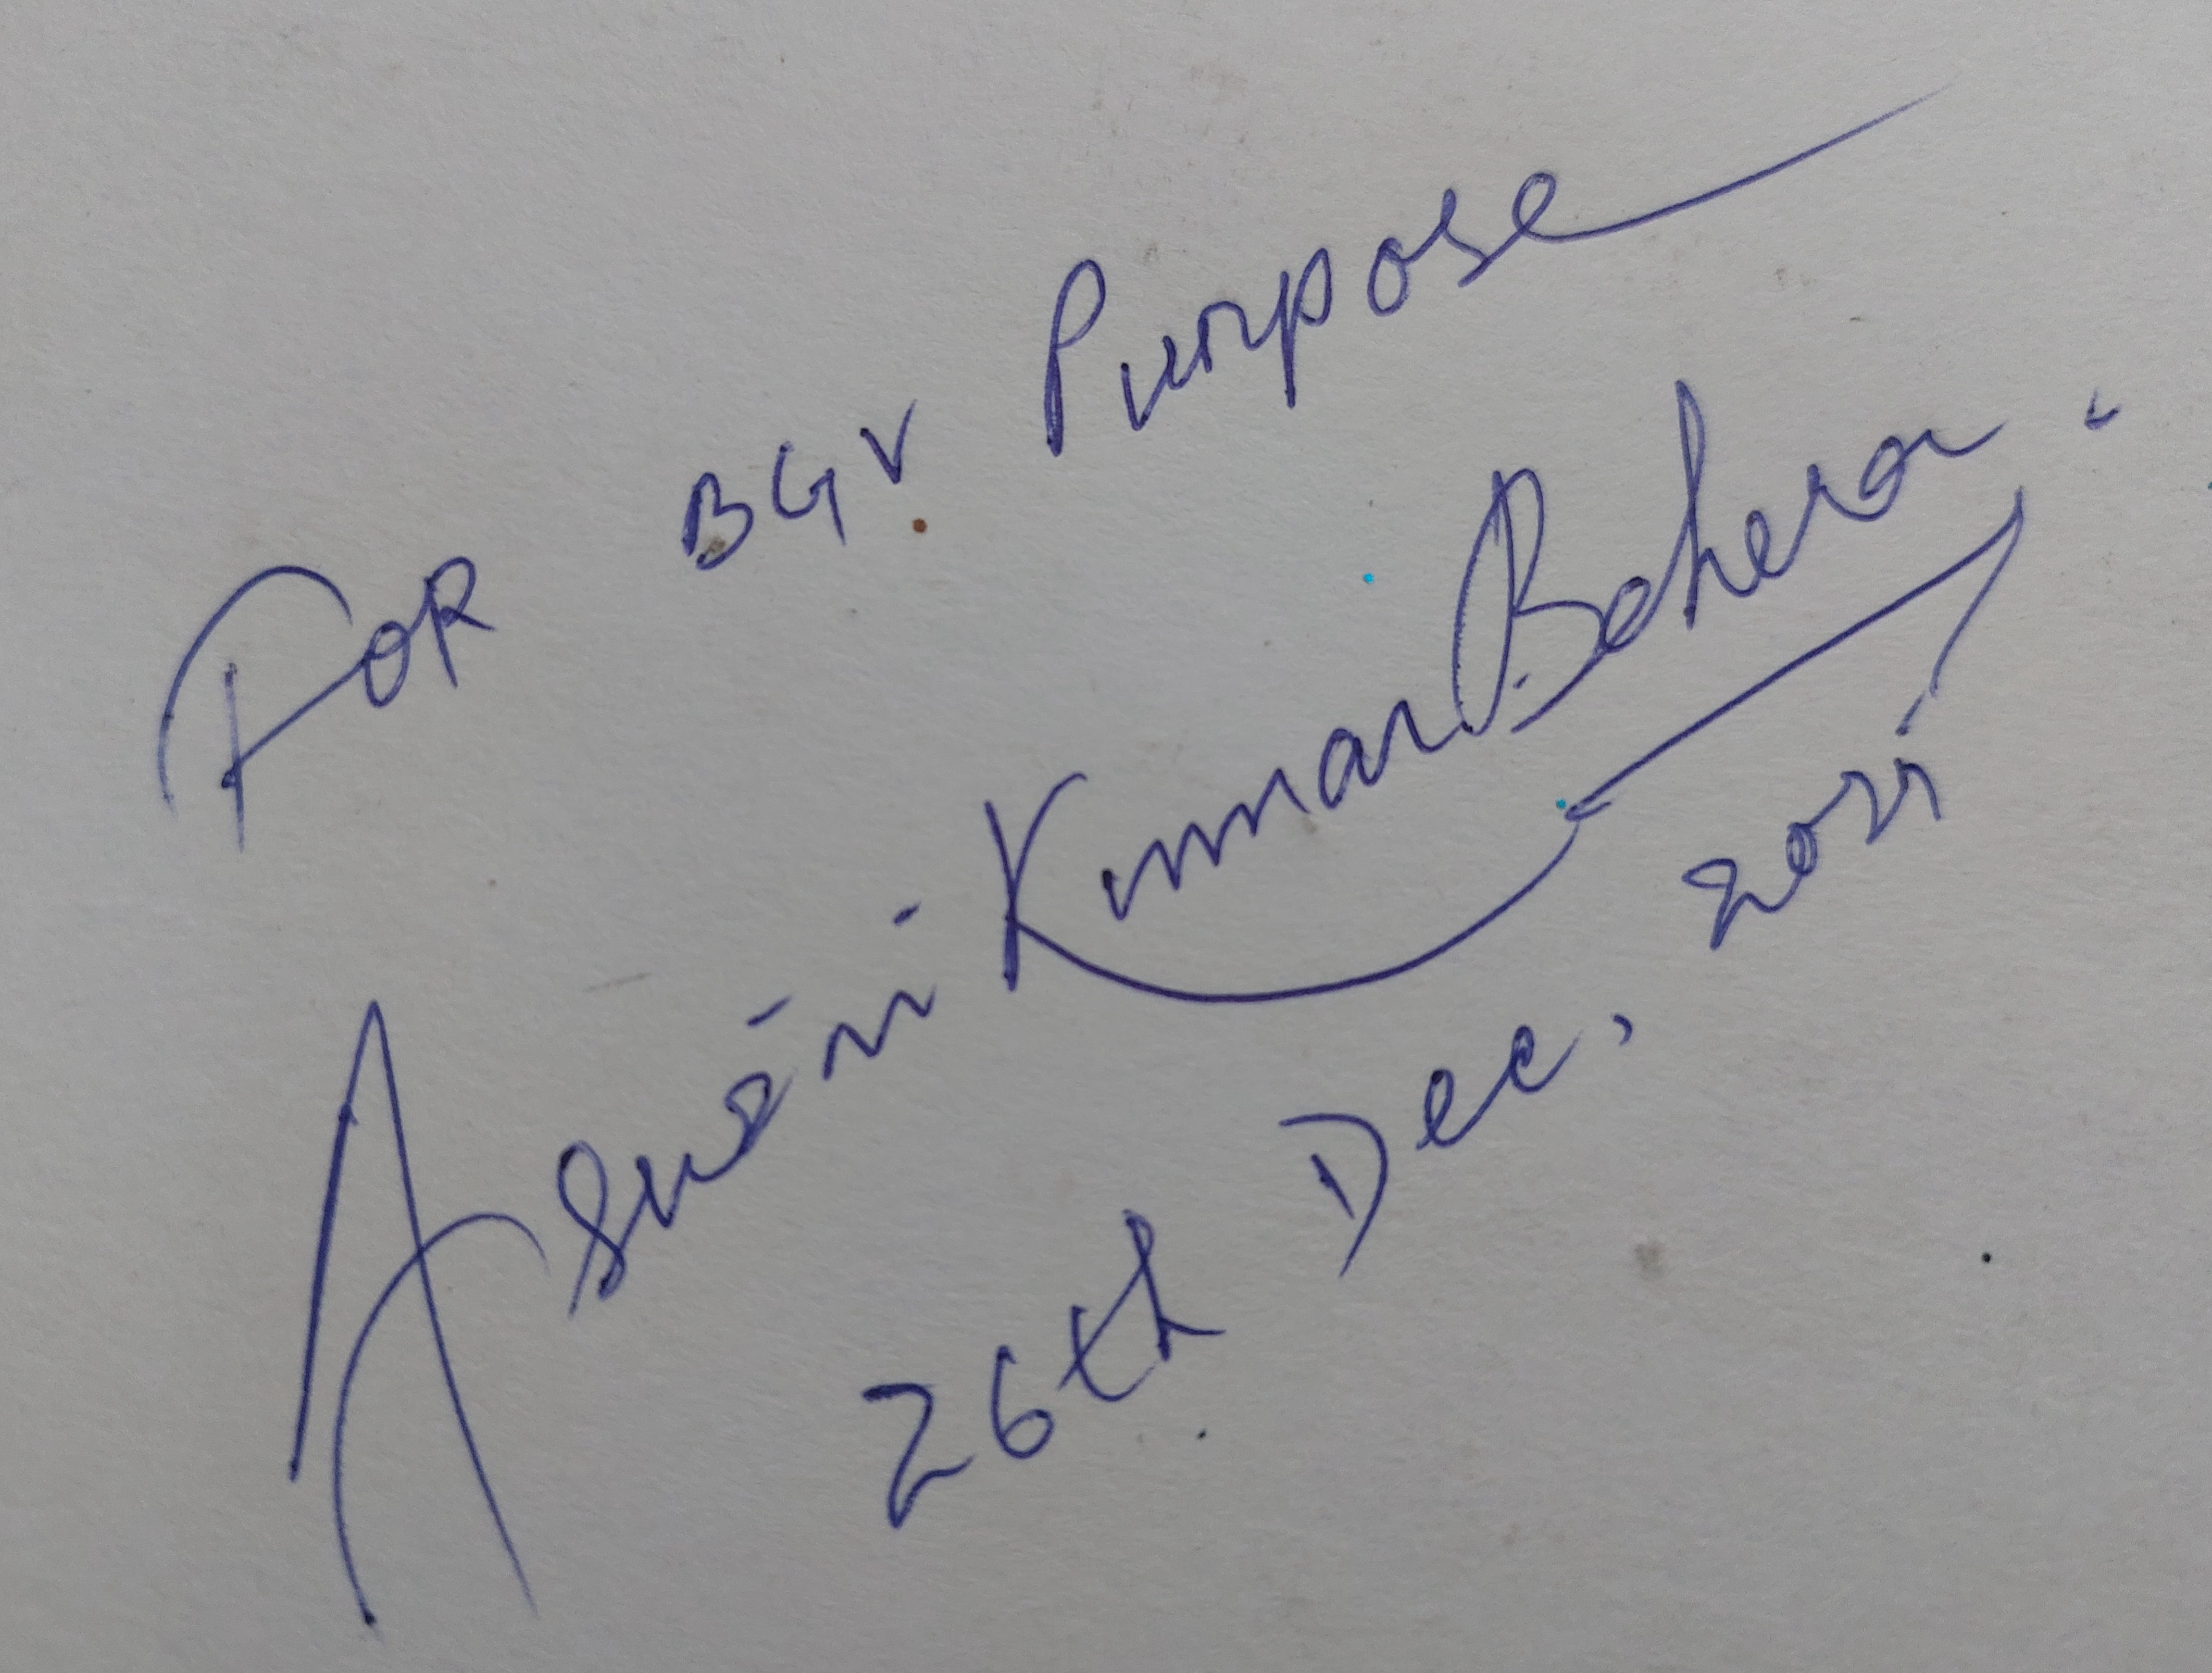 FOR BGV Purpose
Aswini Kumar Behera.
26th Dec, 2021